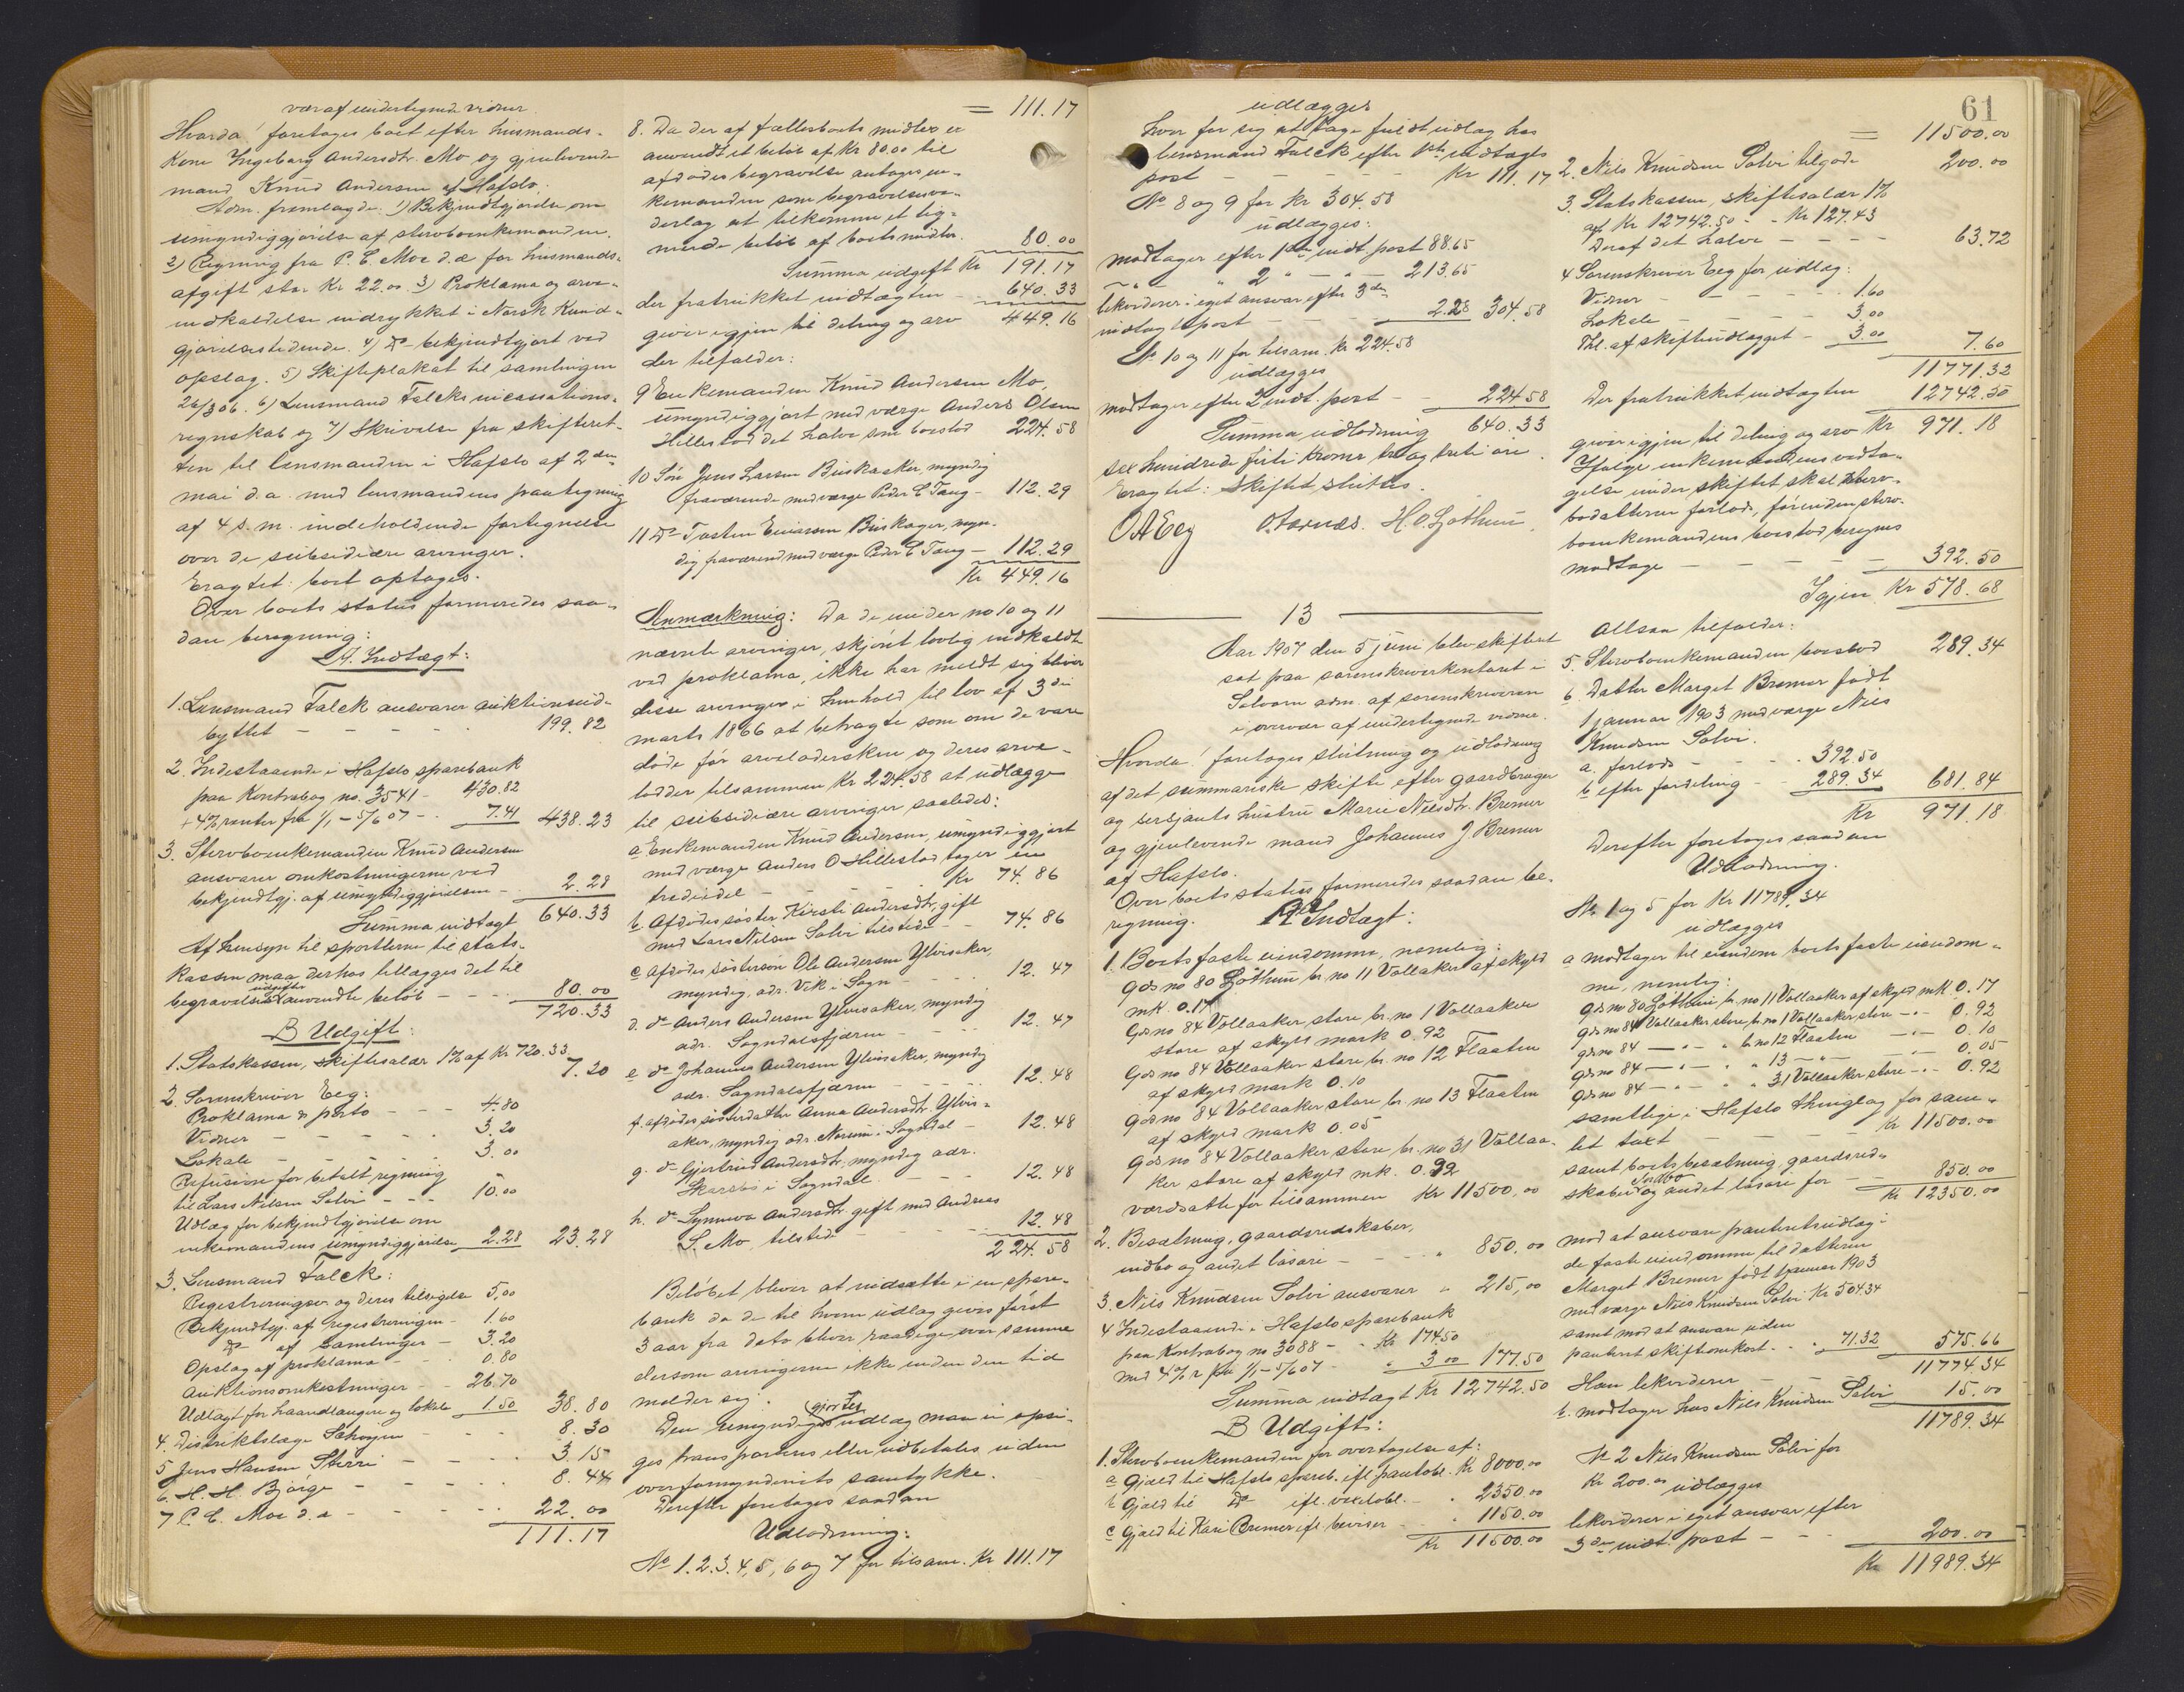 vær af undertegnede vidner
Hvorda! foretoges boet efter husmands-
kone Ingeborg Andersdtr. Mo og gjenlevende
mand Knud Andersen af Hafslo.
Adm. fremlagde: 1) Bekjendtgjørelse om
umyndiggjørelse af stervboenkemanden.
2) Regning fra P. C. Moe d.æ for husmands-
afgift stor Kr 22.00 3) Proklama og arve-
indkaldelse indrykket i Norsk Kund-
gjørelsestidende. 4) Do bekjendtgjort ved
opslag. 5) Skifteplakat til samlingen
26/3 06. 6) Lensmand Falcks incassations-
regnskab og 7) Skrivelse fra skifteret-
ten til lensmanden i Hafslo af 2den
mai d.a. med lensmandens paategning
af 4 s.m. indeholdende fortegnelse
over de subsidiære arvinger.
Eragtet: boet optages.
Over boets status formeredes saa-
dan beregning:
A. Indtægt:
1. Lensmand Falck ansvarer auktionsud-
byttet - - - - 199.82
2. Indestaaende i Hafslo sparebank
paa Kontrabog no. 3541 - 430.82
+ 4% renter fra 1/1 - 5/6 07 - 7.41 438.23
3. Stervboenkemanden Knud Andersen
ansvarer omkostningerne ved
bekjendtgj. af umyndiggjørelsen - 2.28
Summa indtægt 640.33
Af hensyn til sportlerne til stats-
kassen maa derhos tillægges det til
begravelsesudgifter anvendte beløb - - - 80.00
720.33
B Udgift:
1. Statskassen, skiftesalær 1% af Kr 720.33
7.20
2. Sorenskriver Eeg:
Proklama & porto - - - 4.80
Vidner - - - - 3.20
Lokale - - - - 3.00
Refusion for betalt regning
til Lars Nilsen Solvi - - - 10.00
Udlæg for bekjendtgjørelse om
enkemandens umyndiggjørelse 2.28 23.28
3. Lensmand Falck:
Registreringsv. og deres tilsigelse 5.00
Bekjendtgj. af registreringen - 1.60
Do af samlinger - 3.20
Opslag af proklama - - 0.80
Auktionsomkostninger - - 26.70
Udlagt for haandlangere og lokale 1.50 38.80
4. Distriktslæge - - - 8.30
5 Jens Hansen - - - 3.15
6. H. H. Bjørge - - - 8.44
7 P. C. Moe d.æ - - - 22.00
111.17
= 111.17
8. Da der af fællesboets midler er
anvendt et beløb af Kr 80.00 til
afdødes begravelse antages en-
kemanden som begravelsesve-
derlag at tilkomme et lig-
nende beløb af boets midler. 80.00
Summa udgift Kr 191.17
der fratrukket indtægten - 640.33
giver igjen til deling og arv 449.16
der tilfalder:
9 Enkemanden Knud Andersen Mo,
umyndiggjort med værge Anders Olsen
Hillestad det halve som boeslod 224.58
10 Søn Jens Larsen Buskaker, myndig
fraværende med værge Peder C Tang - 112.29
11 Do Tosten Buskager, myn-
dig fraværend med værge Peder C Tang - 112.29
Kr 449.16
Anmærkning: Da de under no 10 og 11
nævnte arvinger, skjønt lovlig indkaldt
ved proklama, ikke har meldt sig bliver
disse arvinger i henhold til lov af 3die
marts 1866 at betragte som om de vare
døde før arveladersken og deres arve-
lodder tilsammen Kr 224.58 at udlægge
til subsidiære arvinger saaledes:
a. Enkemanden Knud Andersen, umyndiggjort
med værge Anders O Hillestad tager en
trediedel - - - Kr 74.86
b. Afdødes søster Kirsti Andersdtr, gift
med Lars Nilsen Solvi tilstede - - 74.86
c afdødes søstersøn Ole Andersen Ylvisaker,
myndig, adr. Vik i Sogn - - 12.47
d. do Anders Andersen Ylvisaker, myndig
adr. Sogndalsfjæren - - - 12.47
e do Johannes Andersen Ylvisaker, myndig
adr. Sogndalsfjæren - - - 12.48
f. afdødes søsterdatter Anna Andersdtr. Ylvis-
aker, myndig adr. Norum i Sogndal - 12.48
g. do Gjertrud Andersdtr, myndig adr.
Skarsbø i Sogndal - - - 12.48
h. do Synneva Andersdtr gift med Andreas
S. Mo, tilstede - - - 12.48
224.58
Beløbet bliver at indsætte i en spare-
bank da de til hvem udlæg gives først
3 aar fra dato bliver raadige over samme
dersom arvingerne ikke inden den tid
melder sig.
Den umyndiggjortes udlæg maa ei opsi-
ges transporteres eller udbetales uden
overformynderiets samtykke.
Derefter foretoges saadan
Udlodning:
No 1.2.3.4,5,6 og 7 for tilsam. Kr. 111.17
udlægges
hver for sig at tage fuldt udlæg hos
lensmand Falck efter 1ste indtægts
post - - - - Kr 111.17
No 8 og 9 for Kr 304.58
udlægges:
modtager efter 1ste indt. post 88.65
-"- " 2 " - " - 213.65
likviderer i eget ansvar efter 3die
indtægtspost - - - 2.28 304.58
No 10 og 11 for tilsam. Kr 224.58
udlægges
modtager efter 2 indt. post - - 224.58
Summa udlodning 640.33
sex hundrede firti kroner tre og treti øre.
Eragtet: Skiftet sluttes.
OAEeg O. Aarnes. H. O. Lothun.
13
Aar 1907 den 5 juni blev skifteret
sat paa sorenskriverkontoret i
Solvorn adm. af sorenskriveren
i overvær af undertegnede vidner.
Hvorda! foretoges slutning og udlodning
af det summariske skifte efter gaardbruger
og sersjants hustru Marie Nilsdtr. Bremer
og gjenlevende mand Johannes J Bremer
af Hafslo.
Over boets status formeredes saadan be-
regning. A Indtægt:
1. Boets faste eiendomme, nemlig:
Gds no 80 Lothun br. no 11 Vollaker af skyld
mk 0.17
Gds no 84 Vollaaker store br. no 1 Vollaaker
store af skyld mark 0.92
Gds no 84 Vollaaker store br. no 12 Flaaten
af skyld mark 0.10
Gds no 84 Vollaaker store br. no 13 Flaaten
af skyld mark 0.05
Gds no 84 Vollaaker store br. no 31 Vollaa-
ker store af skyld mk. 0.92
værdsatte for tilsammen Kr 11500,00
2. Besætning, gaardsredskaber,
indbo og andet løsøre - - - " 850.00
3. Nils Knudsen Solvi ansvarer " 215,00
4 Indestaaende i Hafslo sparebank
paa Kontrabog no 3088 - - Kr 174.50
med 4% r fra 1/1 - 5/6 07 - " 3.00 177.50
Summa indtægt Kr 12742.50
B Udgift:
1. Stervboenkemanden for overtagelse af:
a Gjæld til Hafslo spareb. ifl. pantobl. Kr 8000.00
b Gjæld til Do ifl. vexelobl. - " 2350.00
c Gjæld til Kari Bremer ifl. beviser - " 1150.00
Kr 11500.00
61
= 11500.00
2. Nils Knudsen Solvi tilgode 200.00
3. Statskassen, skiftesalær 1%
af Kr 12742.50 - - Kr 127.43
Deraf det halve - - - - 63.72
4 Sorenskriver Eeg for udlæg:
Vidner - - - - 1.60
Lokale - - - - 3.00
Thl. af skifteudlægget - 3.00 7.60
11771.32
Der fratrukket indtægten 12742.50
giver igjen til deling og arv Kr 971.18
Ifølge enkemandens vedta-
gelse under skiftet skal sterv-
bodatteren forlods, foruden sterv-
boenkemandens boeslod beregnes
modtage - - - - 392.50
Igjen Kr 578.68
altsaa tilfalder:
5. Stervboenkemanden boeslod 289.34
6. Datter Marget Bremer født
1 januar 1903 med værge Nils
Knudsen Solvi.
a. forlods - - - - 392.50
b efter fordeling - 289.34 681.84
Kr 971.18
Derefter foretoges saadan
Udlodning.
No 1 og 5 for Kr 11789.34
udlægges
a modtager til eiendom boets faste eiendom-
me, nemlig:
gds no 80 Lothun br. no 11 Vollaaker af skyld mk 0.17
gds no 84 Vollaaker store br. no 1 Vollaaker store - " - 0.92
gds no 84 - " - " br no 12 Flaaten - " - 0.10
gds no 84 - " - " " 13 - " - - " - 0.05
gds no 84 - " - " " 31 Vollaaker store - " - 0.92
samtlige i Hafslo thinglag for sam-
let taxt - - - Kr 11500.00
samt boets besætning, gaardsred-
skaber Indbo og andet løsøre for - - 850.00
Kr 12350.00
mod at ansvare panteretsudlæg i
de faste eiendomme til datteren
Marget Bremer født 1 januar 1903
med værge Nils Knudsen Solvi Kr 504.34
samt mod at ansvare uden
panteret skifteomkost. - " 71.32 575.66
11774.34
Han likviderer - -
b. modtager hos Nils Knudsen Solvi 15.00
11789.34
No 2 Nils Knudsen Solvi for
Kr 200.00 udlægges
likviderer i eget ansvar efter
3die indt. post - - - 200.00
Kr 11989.34